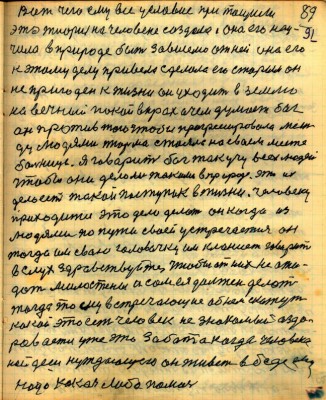 89
Вот чего ему все условие притащили
91
это твори на человека создала, она его нау-
чила в природе быть зависемо от ней она его
к этому делу привела сделала его старым он
не пригоден к жизни он уходит в землю
на вечный покой в прах а чем думает бог
он против того чтобы прогресировала меж-
ду людями тюрма стояла на своем месте
больница. Я говорит бог так учу всех людей
чтобы они делали такими в природе. Это их
делает такой поступок в жизни. Человеку
приходится это дело делат он когда из
людями по пути своей устречается он
тогда им свою головочку им клоняет говорит
вслух здравствуйте, чтобы от них не ожи-
дат милостени а сам ея должен делат
тогда то ему встречающие обязан скажут
какой это есть человек не знакомый а здо-
ровается уже это Забота когда человека
найдеш нуждающего он живет в беде ему
надо какая либо помощ